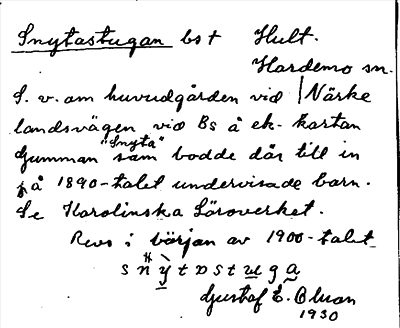 Snytastugan bst Hult.
Hardemo sn.
S. v. om huvudgården vid | Närke
landsvägen vid Bs å ek. kartan
Gumman "Snyta" som bodde där till in
på 1890-talet undervisade barn.
Se Karolinska Läroverket.
Revs i början av 1900-talet.
s n y t ɒ s t u g a
Gustaf E. Bluon
1930